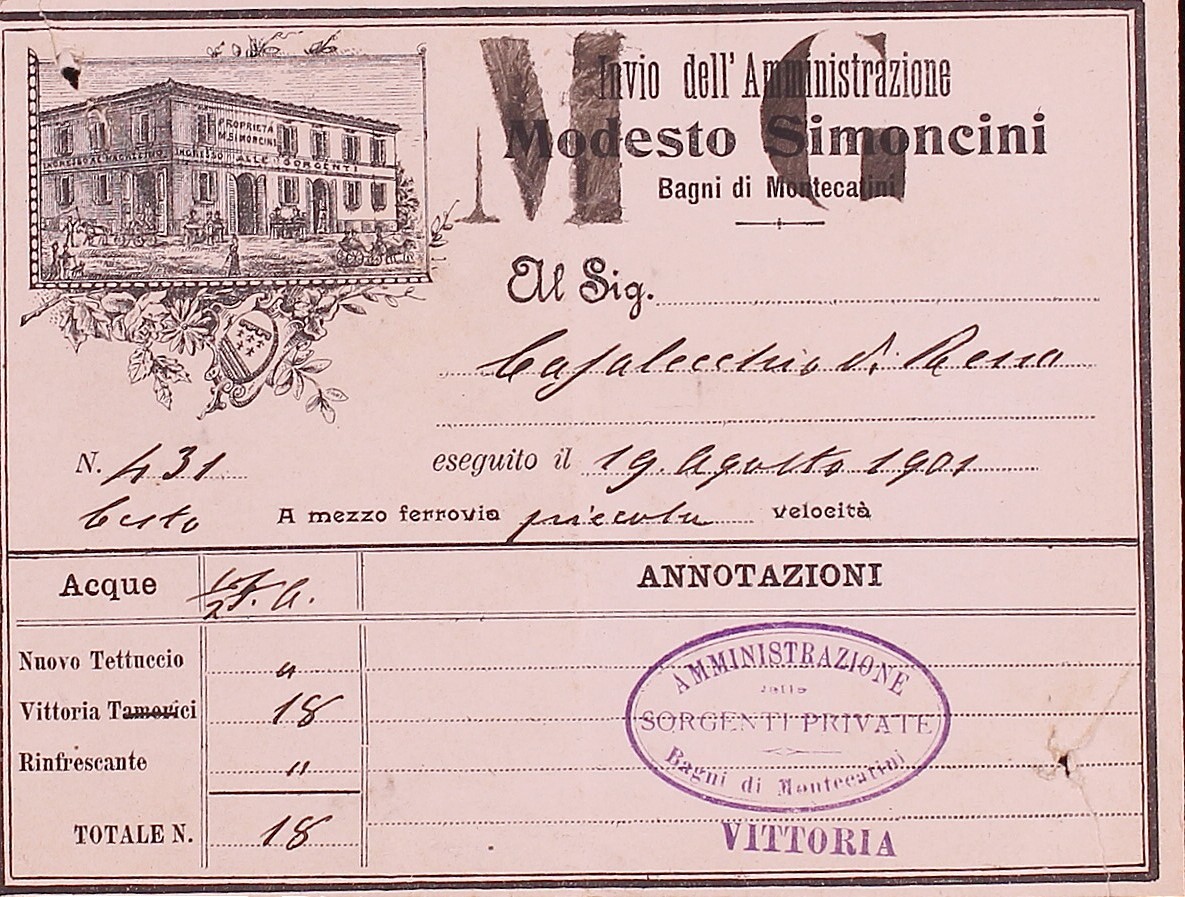 PROPRIETÀ
M. SIMONCINI
INGRESSO ALLE SORGENTI
M G
Invio dell' Amministrazione
Modesto Simoncini
Bagni di Montecatini
Al Sig.
Casalecchio di Reno
N. 431
eseguito il 19. Agosto 1901
Cesto A mezzo ferrovia piccola velocità
Acque 1/2 F. A. ANNOTAZIONI
Nuovo Tettuccio "
Vittoria Tamerici 18
Rinfrescante "
TOTALE N. 18
AMMINISTRAZIONE
delle
SORGENTI PRIVATE
Bagni di Montecatini
VITTORIA